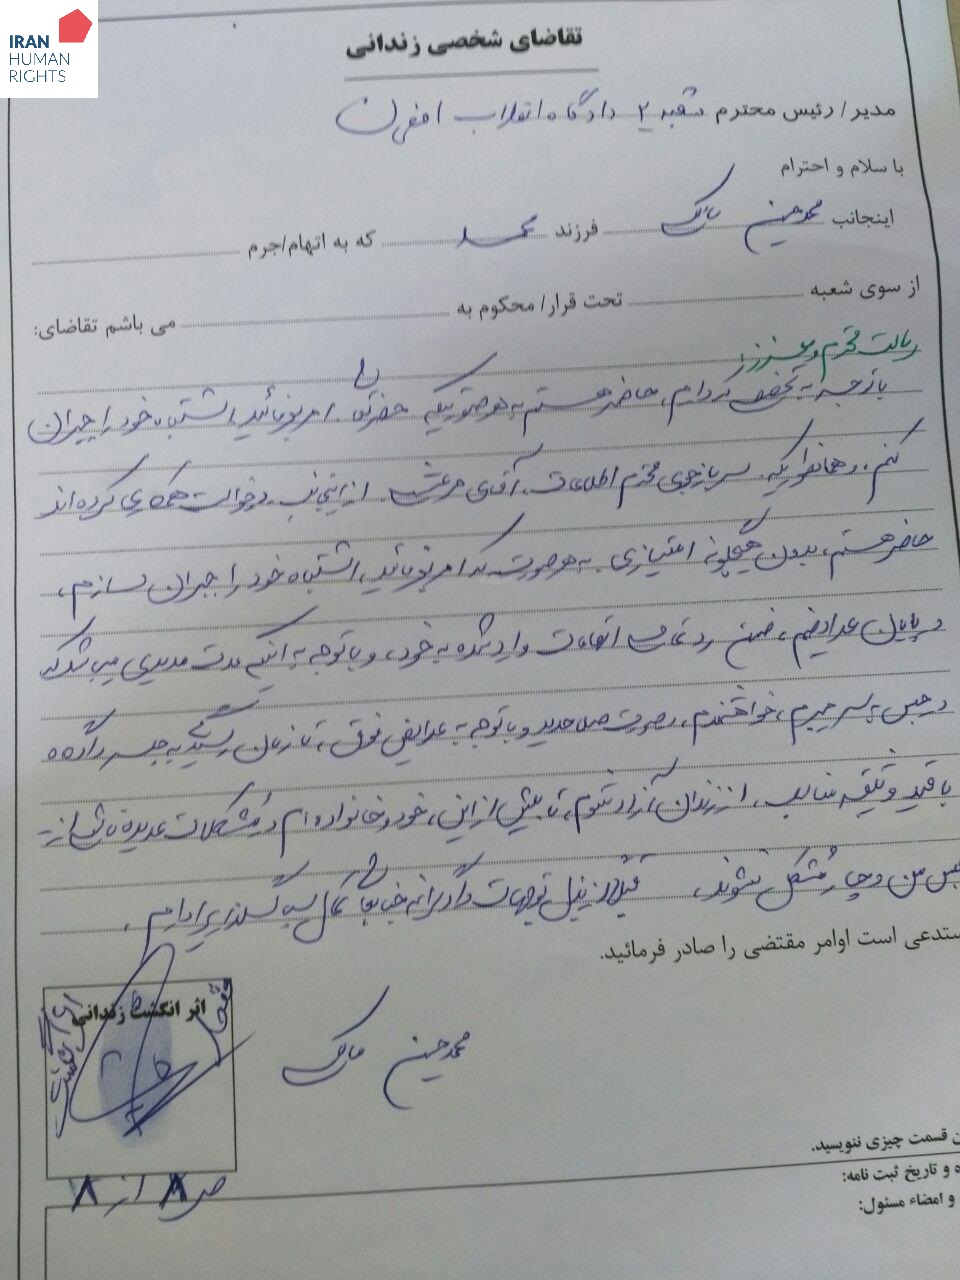 IRAN
HUMAN
RIGHTS
تقاضای شخصی زندانی
مدیر/ رئیس محترم شعبه ۲ دادگاه انقلاب اصفهان
با سلام و احترام
اینجانب محمدحسین فرزند محمد که به اتهام/جرم
از سوی شعبه تحت قرار/ محکوم به می باشم تقاضای:
ریاست محترم و عزیز،
باتوجه به تحقیق کرده‌ام، حاضر هستم به هر صورتیکه حضرتعالی امر بفرمائید، اشتباه خود را جبران
کنم، و همانطوریکه سربازجوی محترم اطلاعات آقای از اینجانب درخواست همکاری کرده‌اند
حاضر هستم، بدون هیچگونه امتیازی به هر صورت که امر بفرمائید، اشتباه خود را جبران سازم،
در پایان عرایضم، ضمن رد تمامی اتهامات وارد شده به خود، و با توجه به اینکه مدت مدیدی میباشد که
در حبس به سر میبرم، خواهشمندم، درصورت صلاحدید و با توجه به عرایض فوق، تا زمان رسیدگی به جلسه دادگاه
با قید وثیقه مناسب، از زندان آزاد شوم، تا بیش از این، خود و خانواده‌ام در مشکلات عدیده ناشی از
حبس من دچار مشکل نشوند، قبلاً از بذل توجهات دادگرانه جنابعالی کمال سپاسگزاری را دارم.
مستدعی است اوامر مقتضی را صادر فرمائید.
اثر انگشت زندانی
اثر انگشت
محمدحسین
ص ۸ از ۸
قسمت چیزی ننویسید.
و تاریخ ثبت نامه:
و امضاء مسئول: